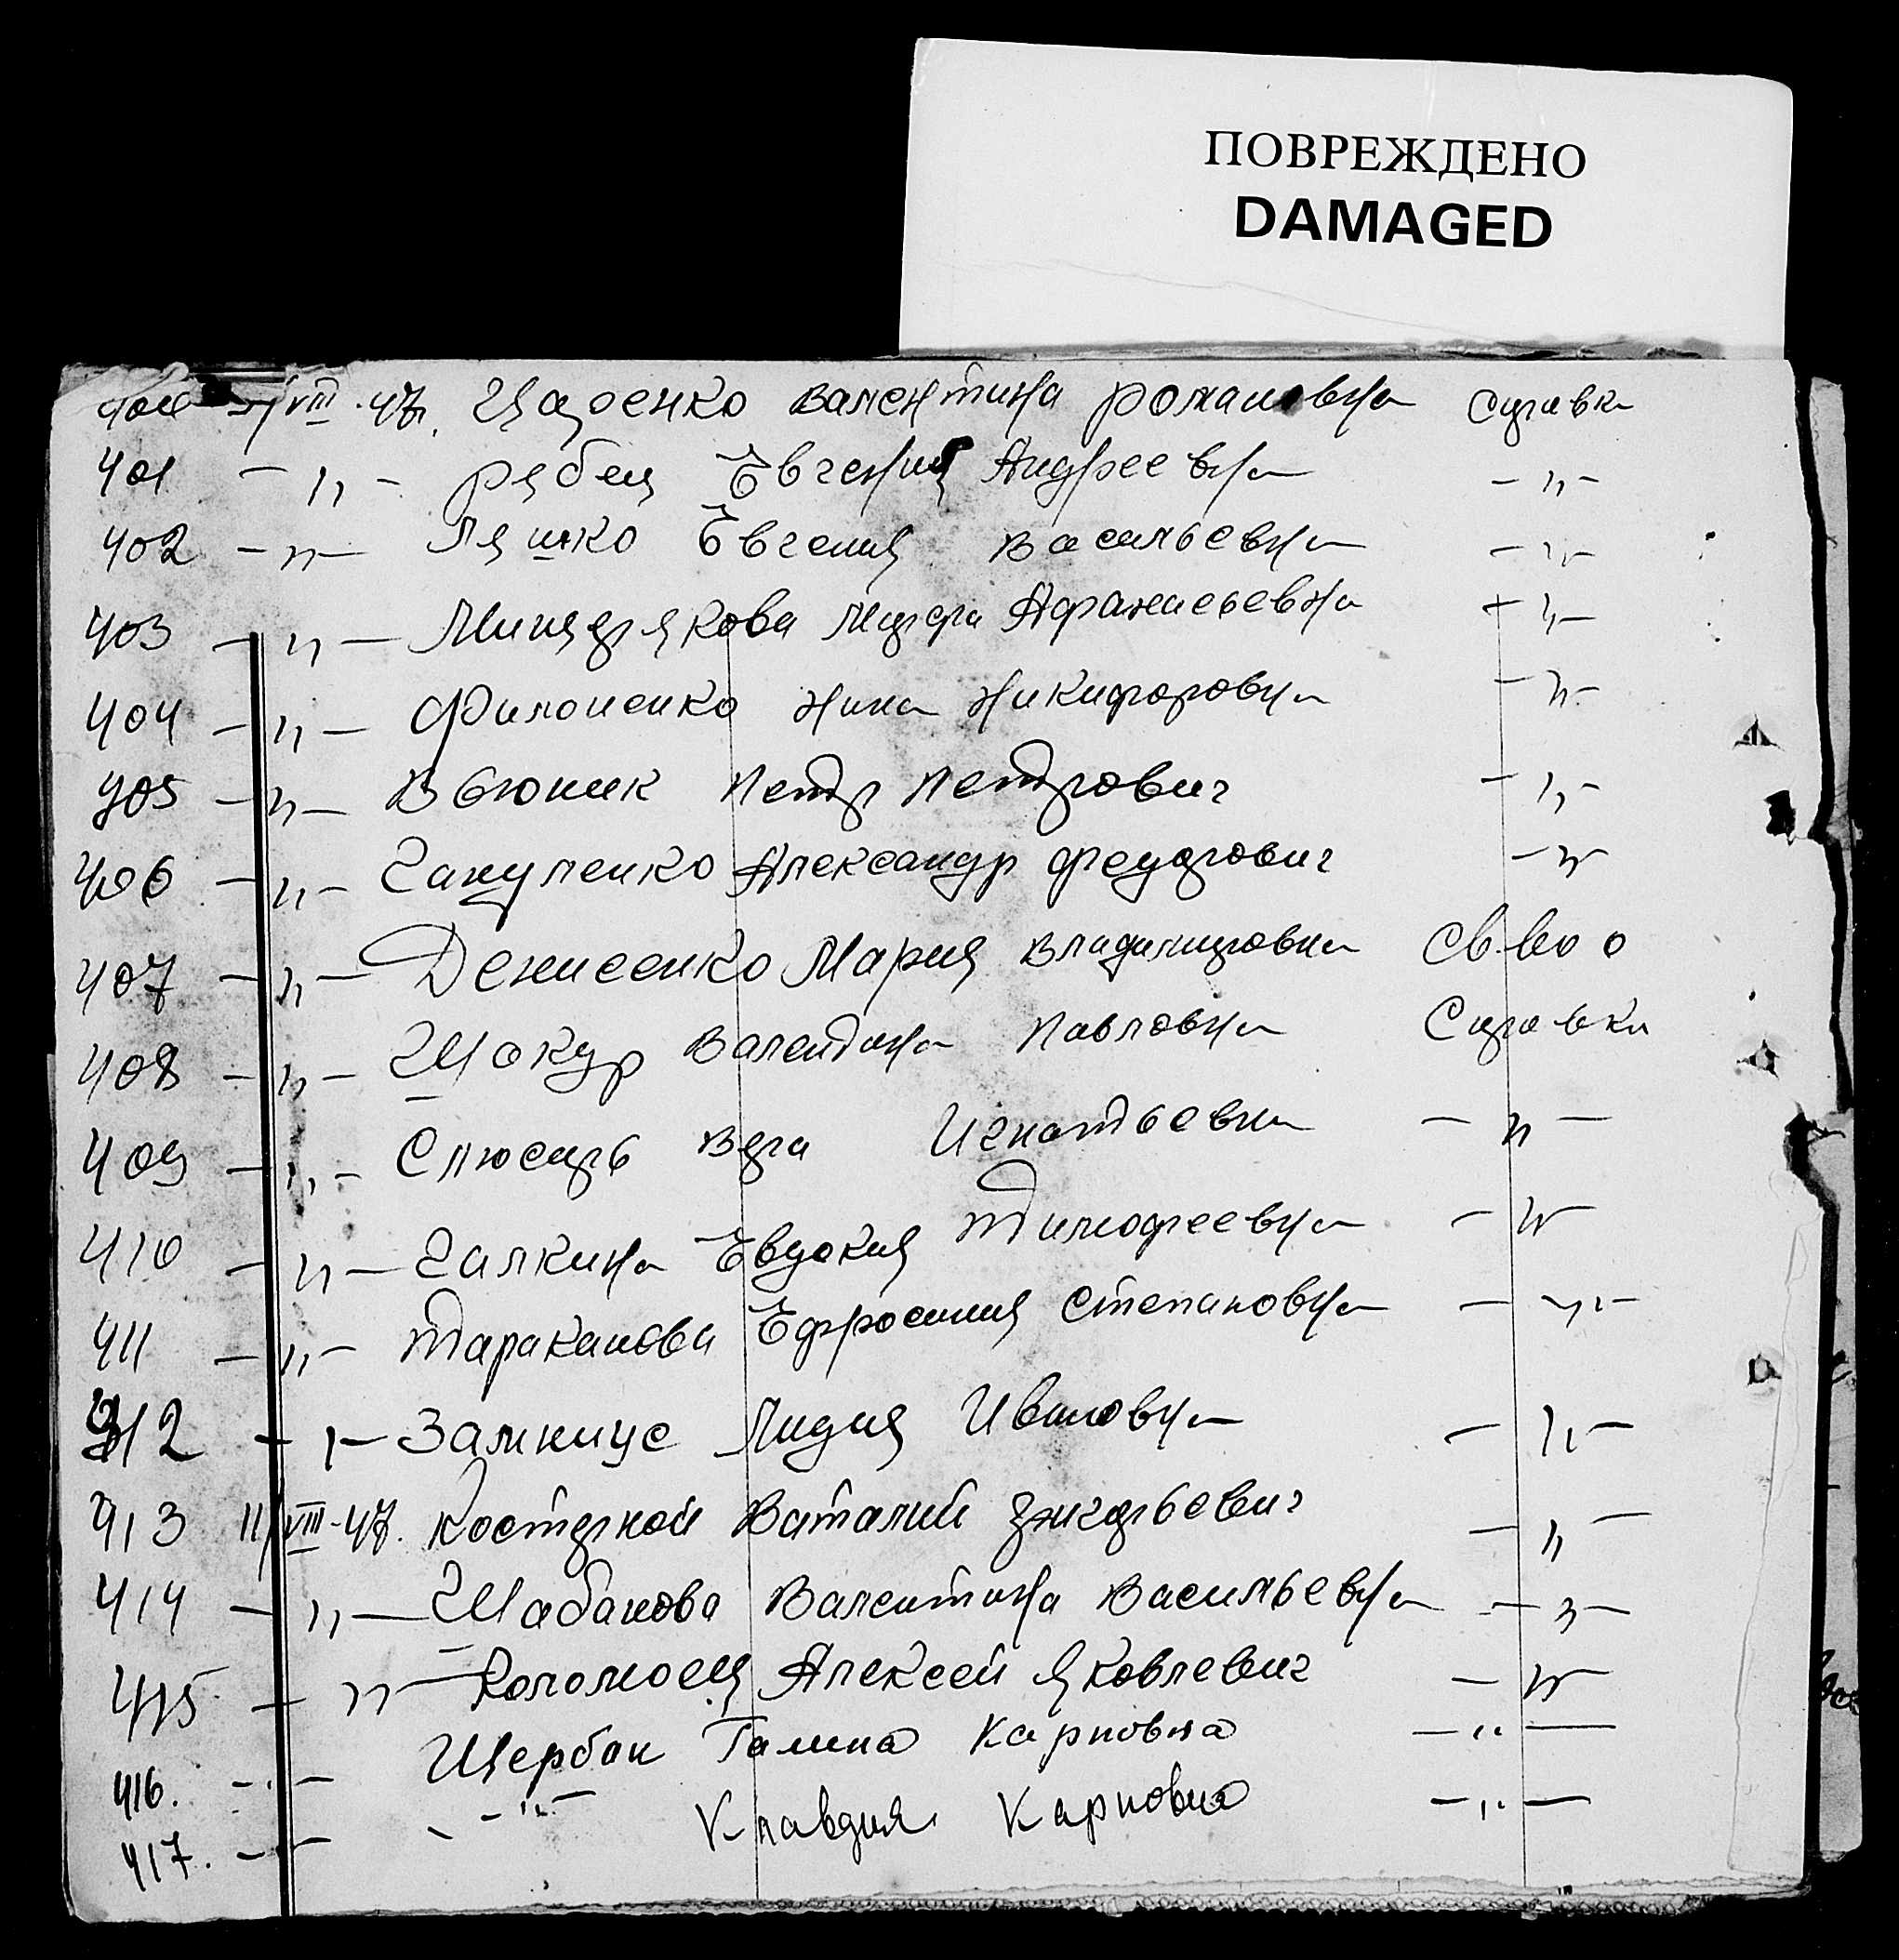 ПОВРЕЖДЕНО
DAMAGED
400 /VIII-47. Валентина Романовна Справка
401 -„- Рябец Евгения Андреевна -„-
402 -„- Ляшко Евгения Васильевна -„-
403 -„- Миндрякова Мария Афанасьевна -„-
404 -„- Филоненко Нина Никифоровна -„-
405 -„- Вьюник Петр Петрович -„-
406 -„- Гануленко Александр Федорович -„-
407 -„- Денисенко Мария Владимировна Св-во о
408 -„- Шокур Валентина Павловна Справка
409 -„- Слюсарь Вера Игнатьевна -„-
410 -„- Галкина Евдокия Тимофеевна -„-
411 -„- Тараканова Ефросиния Степановна -„-
412 -„- Замниус Лидия Ивановна -„-
413 11/VIII-47. Костркой Виталий -„-
414 -„- Шабанова Валентина Васильевна -„-
415 -„- Коломоец Алексей Яковлевич -„-
416. -„- Щербак Галина Карповна -„-
417. -„- -„- Клавдия Карповна -„-